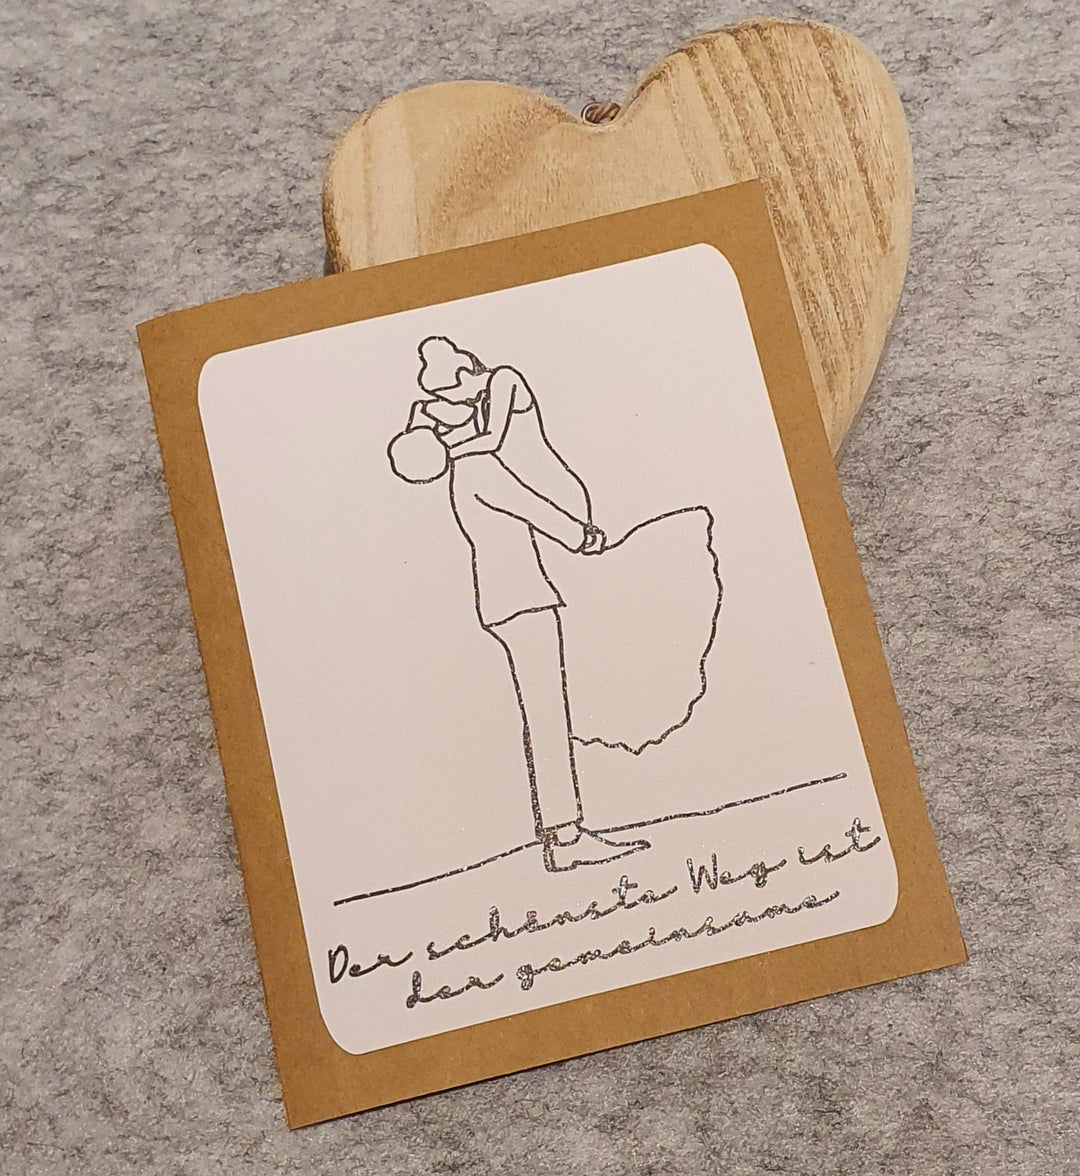 Der schönste Weg ist
der gemeinsame